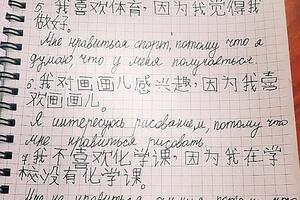 5. 我喜欢体育，因为我觉得我
做好。
Мне нравиться спорт, потому что я
думаю что у меня получается.
6. 我对画画儿感兴趣，因为我喜
欢画画儿。
Я интересуюсь рисованием, потому что
мне нравиться рисовать.
7. 我不喜欢化学课，因为我在学
校没有化学课。